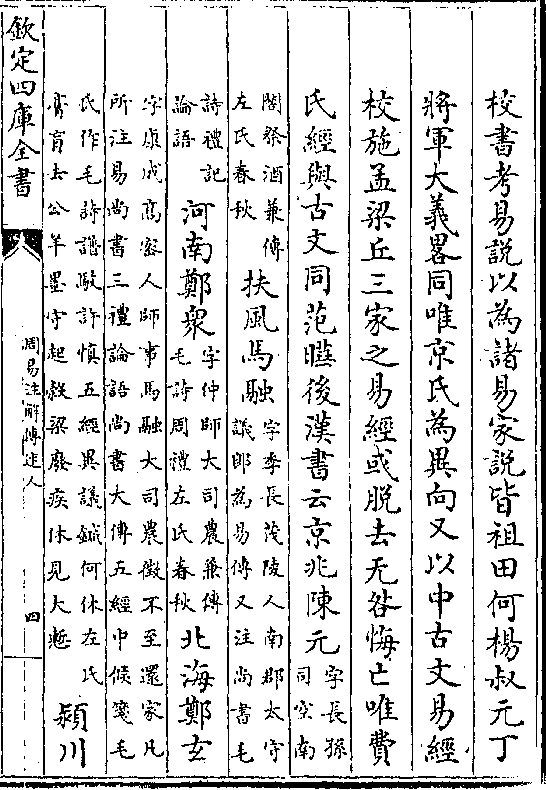 校書考易說以為諸易家說皆祖田何楊叔元丁
將軍大義畧同唯京氏為異向又以中古文易經
校施孟梁丘三家之易經或脫去无咎悔亡唯費
氏經與古文同范曄後漢書云京兆陳元
字長孫
司空南
閣祭酒兼傳
左氏春秋
扶風馬融
字季長茂陵人南郡太守
議郎為易傳又注尚書毛
詩禮記
論語
河南鄭衆
字仲師大司農兼傳
毛詩周禮左氏春秋
北海鄭玄
字康成高宻人師事馬融大司農徵不至還家凡
所注易尚書三禮論語尚書大傳五經中候箋毛
氏作毛詩譜駮許慎五經異議鍼何休左氏
膏肓去公羊墨守起穀梁廢疾休見大慙
潁川
欽定四庫全書
周易注解傳述人
四